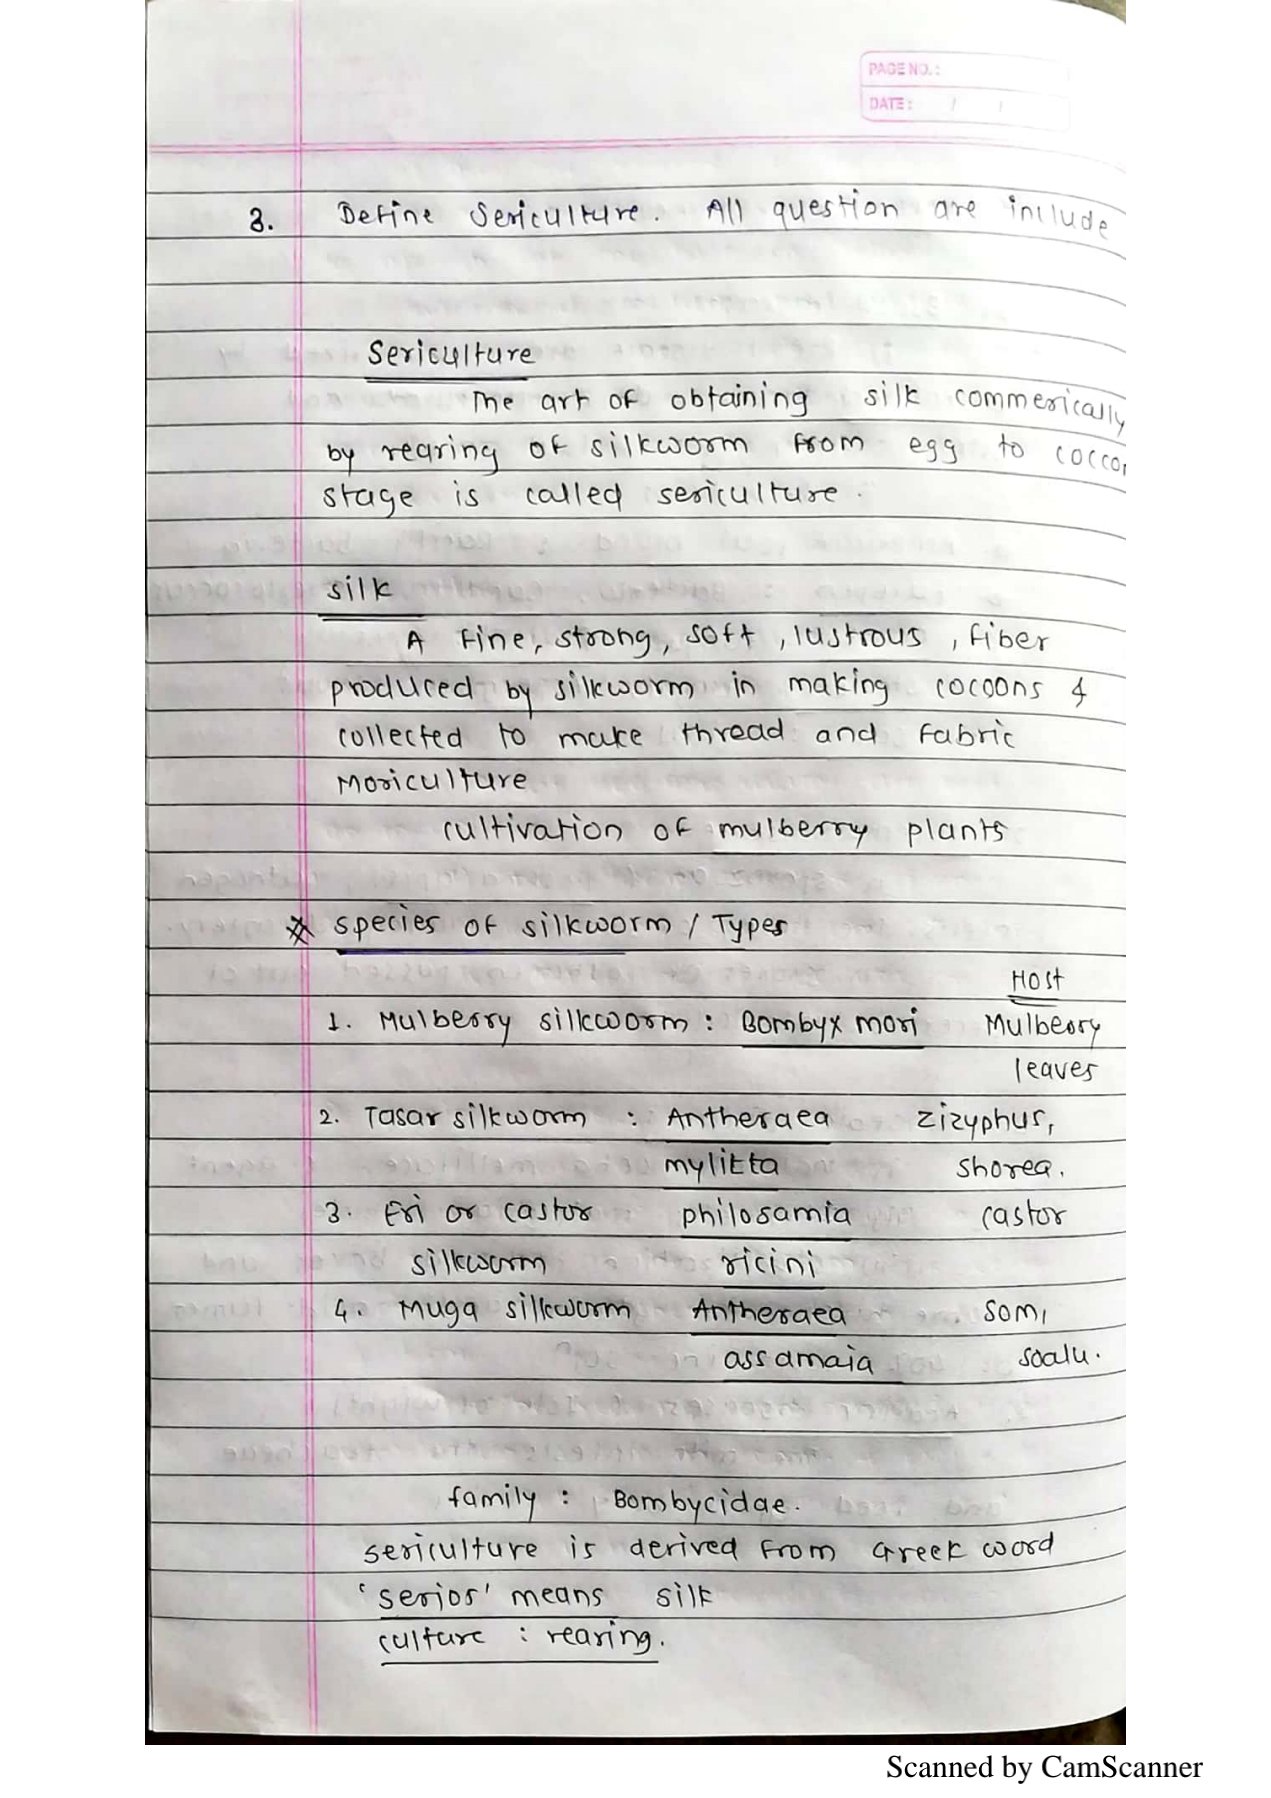 PAGE NO.:
DATE: / /
3. Define Sericulture. All question are include
Sericulture
The art of obtaining silk commerically
by rearing of silkworm from egg to coccon
stage is called sericulture.
silk
A fine, strong, soft, lustrous, fiber
produced by silkworm in making cocoons &
collected to make thread and fabric
Moriculture
cultivation of mulberry plants
* species of silkworm / Types
Host
1. Mulberry silkworm : Bombyx mori Mulberry
leaves
2. Tasar silkworm : Antheraea zizyphus,
mylitta shorea.
3. Eri or castor philosamia castor
silkworm ricini
4. Muga silkworm Antheraea som,
assamaia soalu.
family : Bombycidae.
sericulture is derived from Greek word
'serios' means silk
culture : rearing.
Scanned by CamScanner